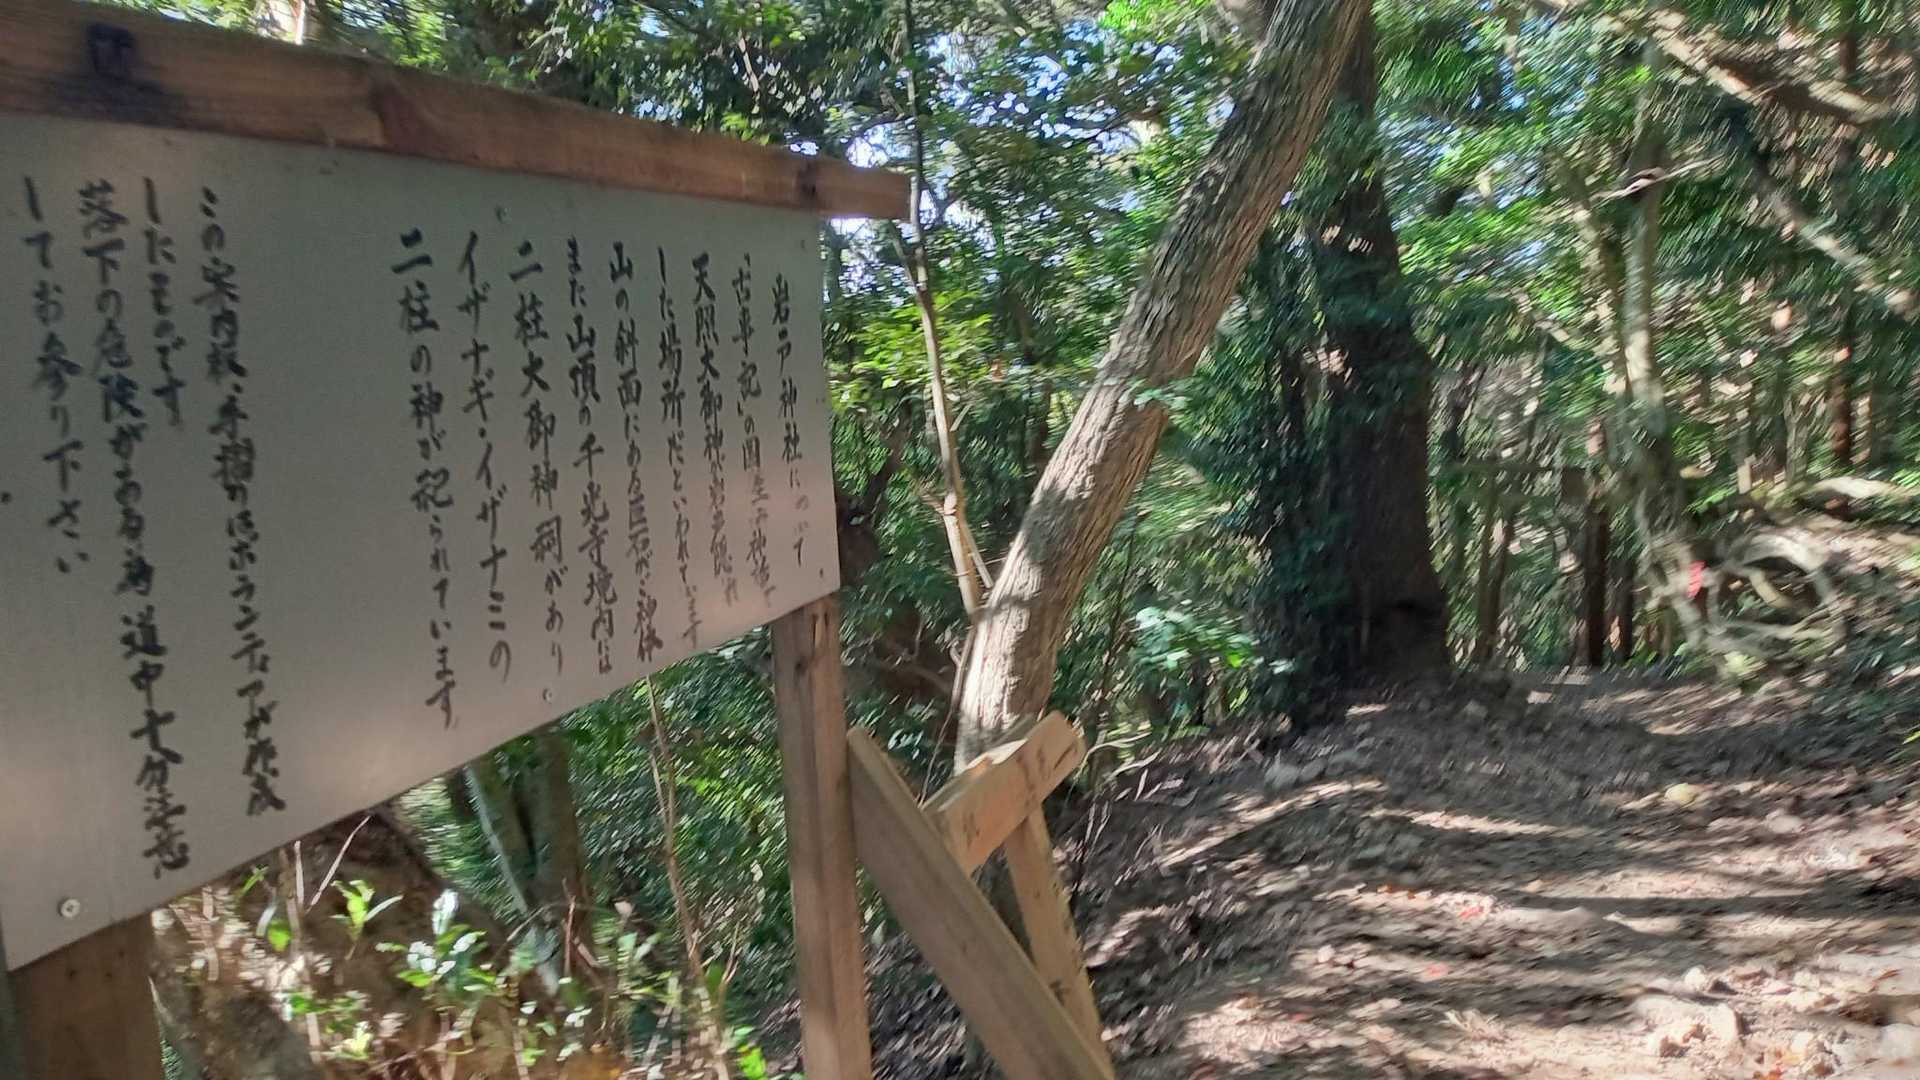 岩戸神社について
「古事記」の国生み神話で
天照大御神が岩戸に隠れ
した場所だといわれています
山の斜面にある巨石がご神体
また山頂の千光寺境内には
二柱大御神祠があり
イザナギ・イザナミの
二柱の神が祀られています
この案内板・手摺りはボランティアが作成
したものです
落下の危険がある為道中十分注意
してお参り下さい